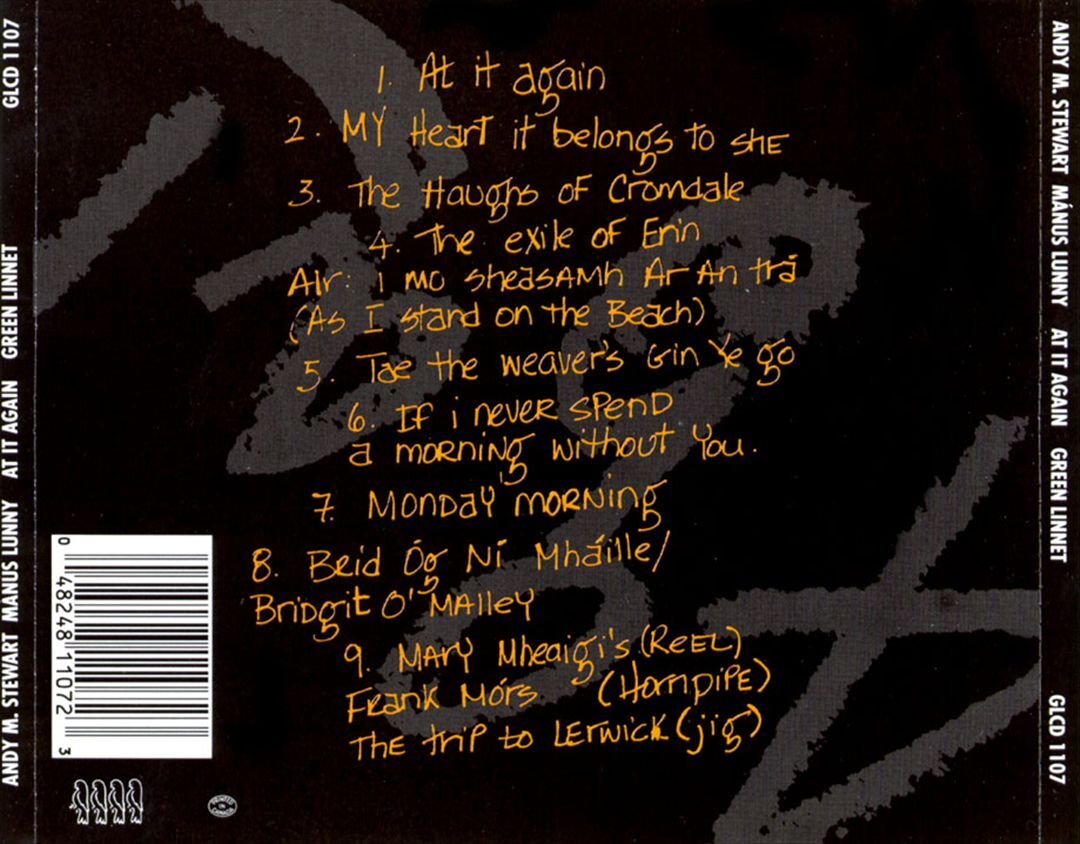 ANDY M. STEWART MANUS LUNNY AT IT AGAIN GREEN LINNET GLCD 1107
1. At it again
2. MY Heart it belongs to sHE
3. The Haughs of Cromdale
4. The exile of Erin
AIr: i mo sheasAMh Ar An trá
(As I stand on the Beach)
5. Tae the weaver's Gin Ye go
6. If i never SPenD
a morning without You.
7. Monday morning
8. Bríd Óg Ní Mháille/
Bridgit O'MAlley
9. MARY Mheaigi's (ReEL)
Frank Mórs (HornpiPE)
The trip to Lerwick (jig)
0 48248 11072 3
PRINTED IN CANADA
ANDY M. STEWART MÁNUS LUNNY AT IT AGAIN GREEN LINNET GLCD 1107